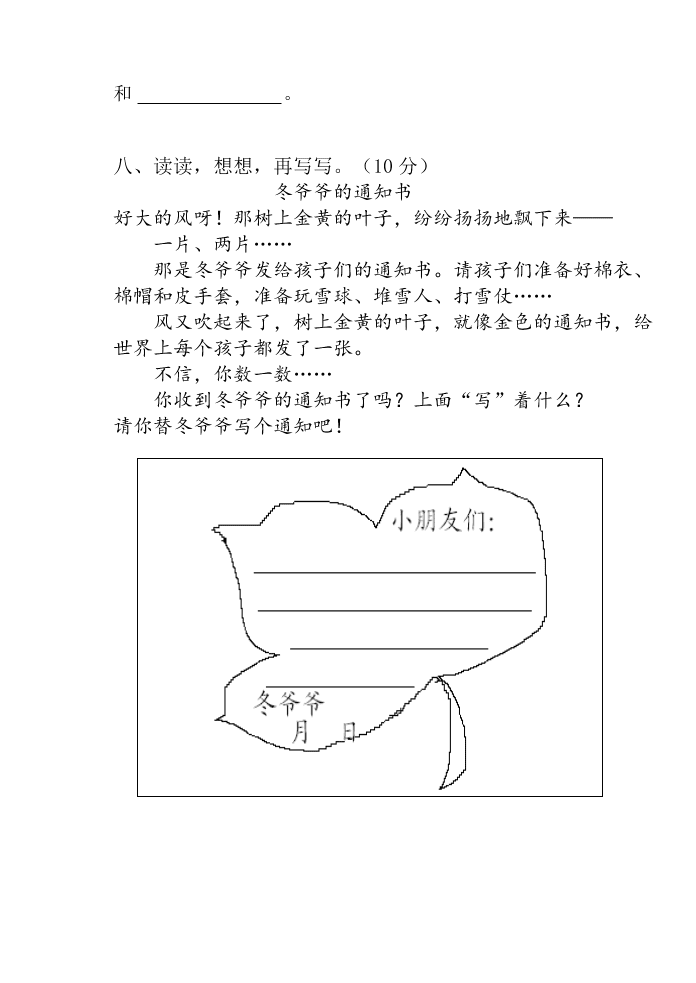 和 ______________。
八、读读，想想，再写写。（10 分）
冬爷爷的通知书
好大的风呀！那树上金黄的叶子，纷纷扬扬地飘下来——
一片、两片……
那是冬爷爷发给孩子们的通知书。请孩子们准备好棉衣、
棉帽和皮手套，准备玩雪球、堆雪人、打雪仗……
风又吹起来了，树上金黄的叶子，就像金色的通知书，给
世界上每个孩子都发了一张。
不信，你数一数……
你收到冬爷爷的通知书了吗？上面“写”着什么？
请你替冬爷爷写个通知吧！
小朋友们：
冬爷爷
月 日